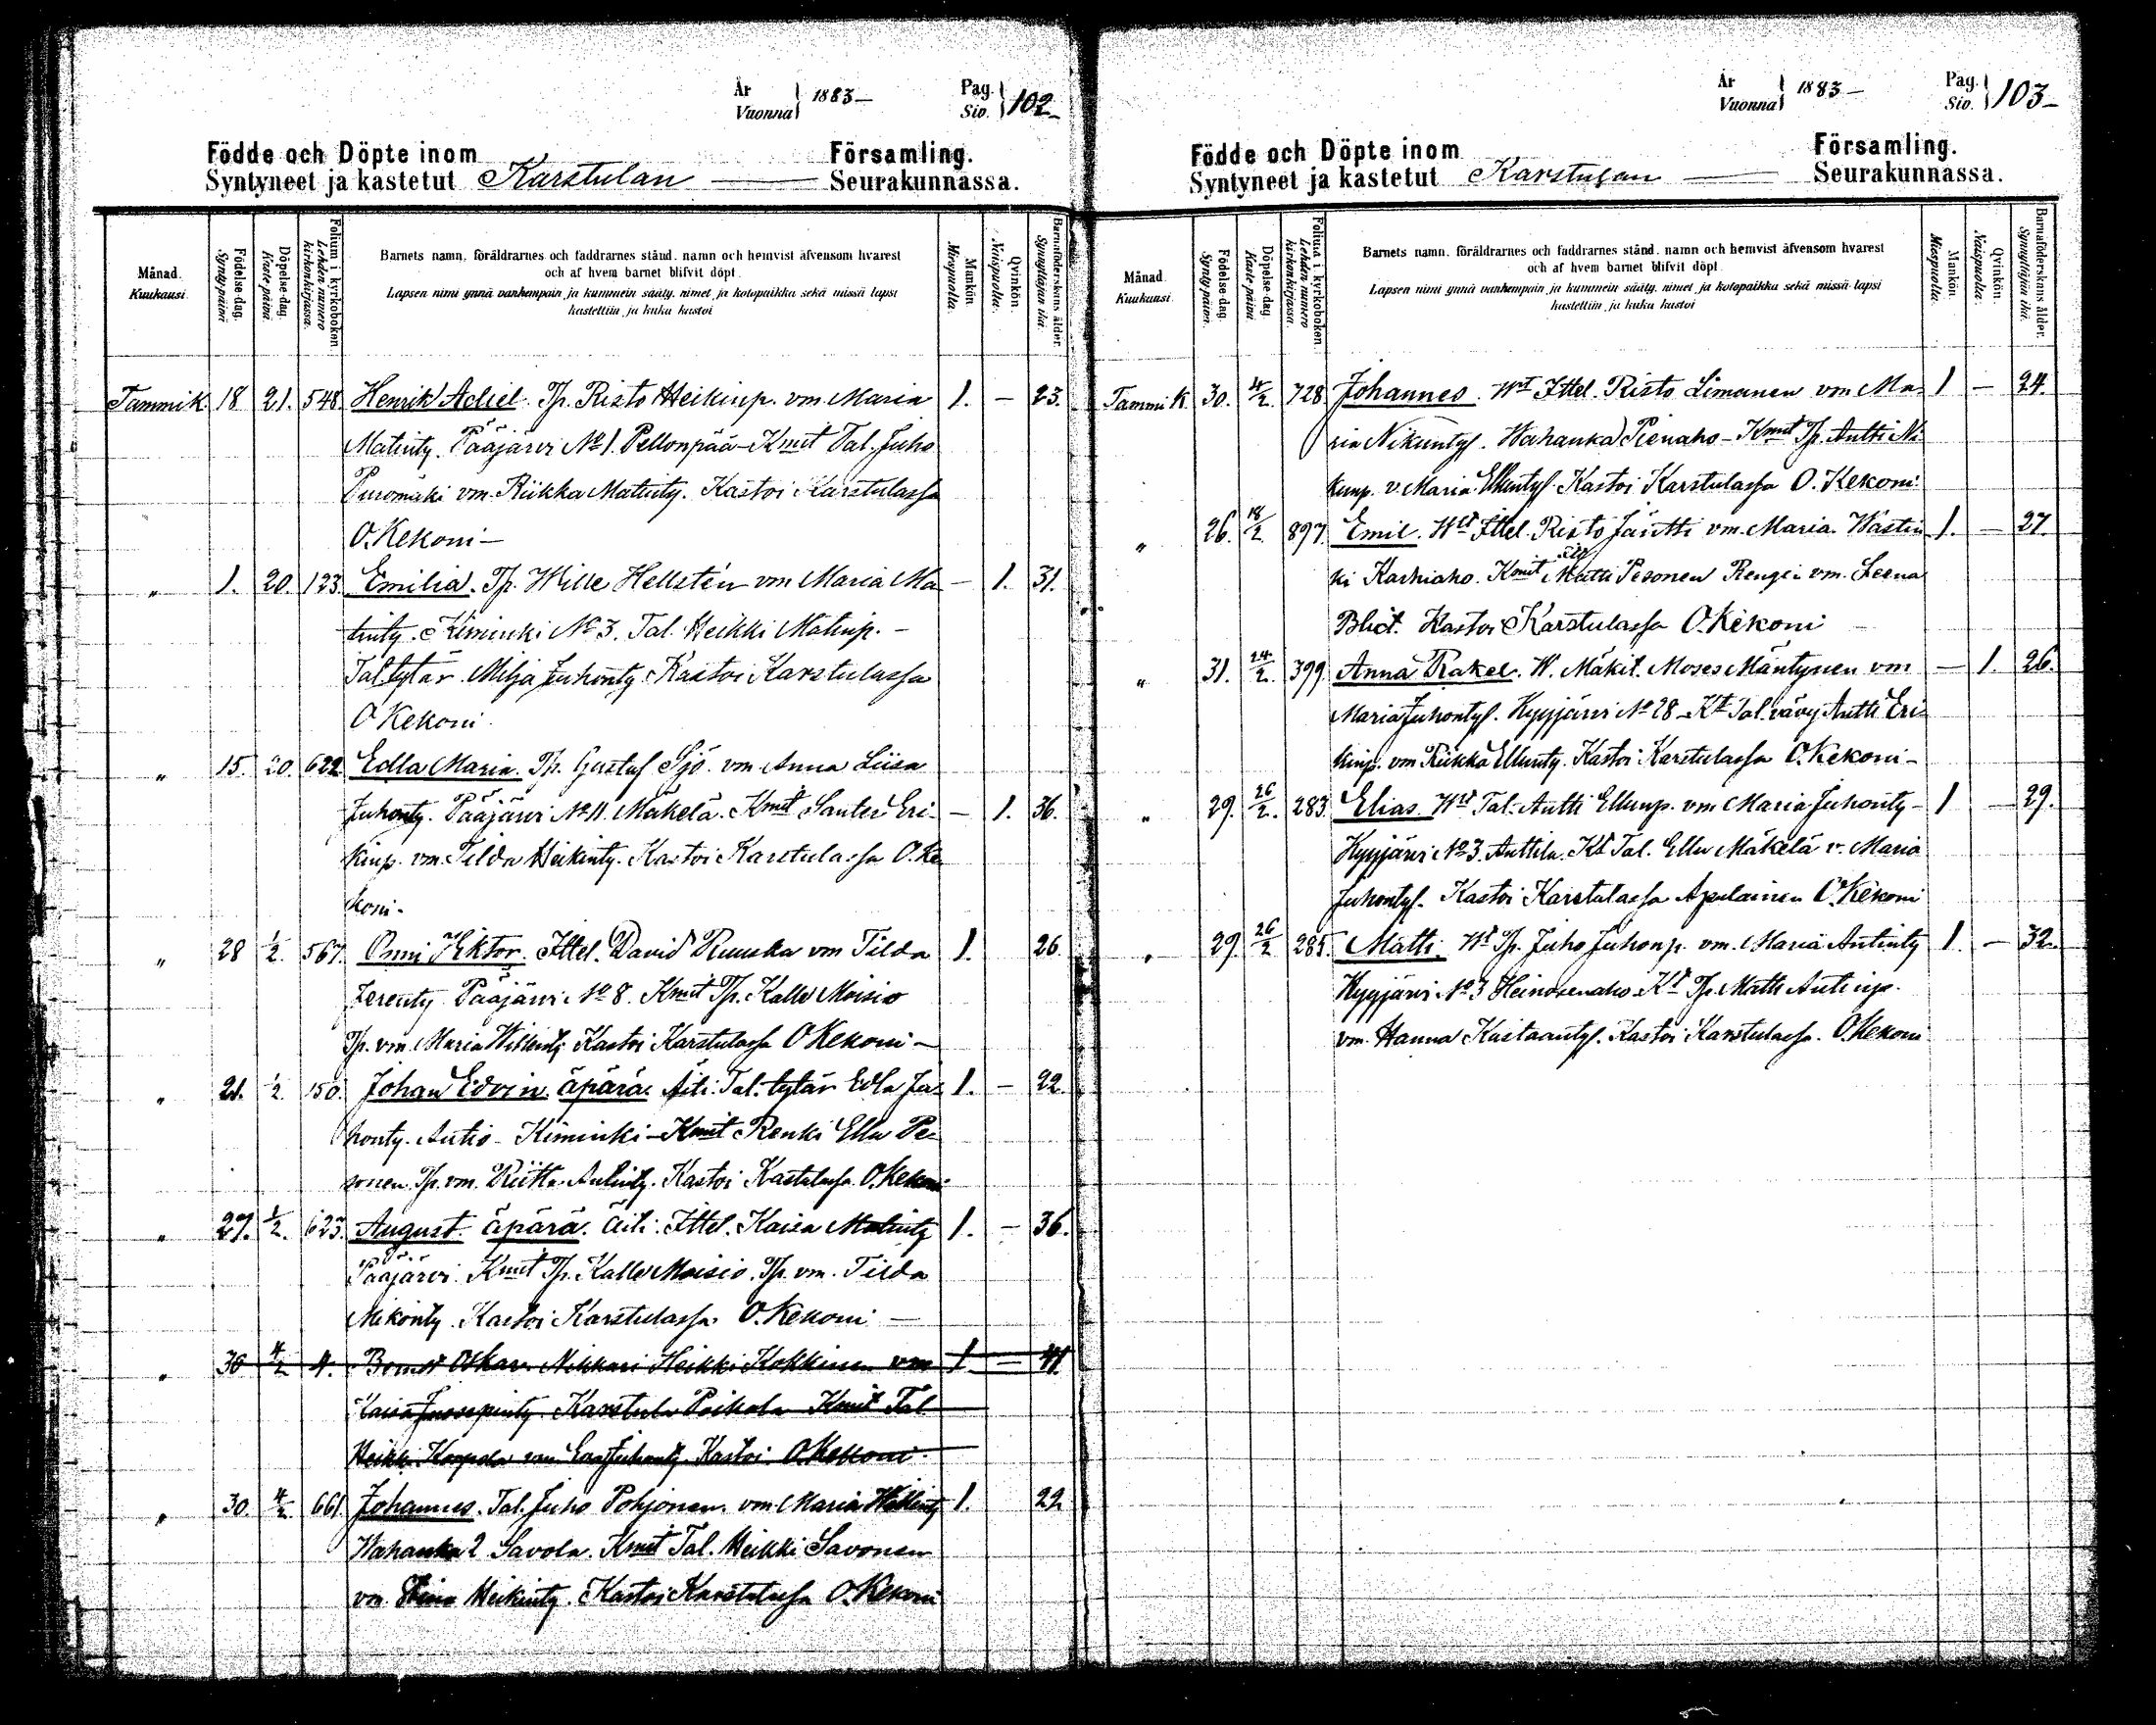 År
Vuonna } 1883–
Pag.
Siv. } 102–
Födde och Döpte inom Församling.
Syntyneet ja kastetut Karstulan Seurakunnassa.
Månad.
Kuukausi.
Födelse-dag.
Synty-päivä.
Döpelse-dag.
Kaste-päivä.
Folium i kyrkoboken.
Lehden numero kirkonkirjassa.
Barnets namn, föräldrarnes och faddrarnes stånd, namn och hemvist äfvensom hvarest
och af hvem barnet blifvit döpt.
Lapsen nimi ynnä vanhempain ja kummein sääty, nimet ja kotopaikka sekä missä lapsi
kastettiin ja kuka kastoi
Mankön.
Miespuolta.
Qvinkön.
Naispuolta.
Barnaföderskans ålder.
Synnyttäjän ikä.
Tammik. 18 21. 548. Henrik Adiel. Tp. Risto Heikinp. vm Maria 1. – 23.
Matinty. Pääjärvi No 1. Pellonpää – Kmit Tal. Juho
Puromäki vm. Riikka Matinty. Kastoi Karstulassa
O. Kekoni –
„ 1. 20. 123. Emilia. Tp. Wille Hellstén vm Maria Ma – 1. 31.
tinty. Kiminki No 3. Tal. Heikki Matinp. –
Tal. tytär Milja Juhonty. Kastoi Karstulassa
O Kekoni.
„ 15. 20. 622. Edla Maria. Tp. Gustaf Sjö. vm Anna Liisa
Juhonty. Pääjärvi No 11. Mäkelä. Kmit Santer Eri – 1. 36.
kinp. vm. Tilda Heikinty. Kastoi Karstulassa O. Ke
koni –
„ 28 1/2. 567. Onni Hektor. Ittel. David Ruuska vm Tilda 1. 26.
Jerenty Pääjärvi No 8. Kmit Tp. Kalle Moisio
Tp. vm. Maria Willenty Kastoi Karstulassa O Kekoni –
„ 21. 1/2. 150. Johan Edvin. äpärä. Äiti. Tal. tytär Edla Ju 1. – 22.
honty. Autio – Kiminki – Kmit Renki Ellu Pe
sonen Tp. vm. Riitta Antinty. Kastoi Kastulassa O. Kekoni
„ 27. 1/2. 623. August äpärä. Äiti: Ittel. Kaisa Matinty 1. – 36.
Pääjärvi. Kmit Tp. Kalle Moisio. Tp. vm. Tilda
Mikonty. Kastoi Karstulassa O. Kekoni –
„ 30 4/2 4. Oskar. Nikkari Heikki Kokkinen vm 1. – 41.
Kaisa Karstula Poikola Kmit Tal
Heikki vm Juhonty. Kastoi O. Kekoni
„ 30. 4/2 661. Johannes. Tal. Juho Pohjonen. vm Maria 1. 22
Wahanka 2 Savola. Kmit Tal. Heikki Savonen
vm. Stina Heikinty. Kastoi Karstulassa O. Kekoni
År
Vuonna } 1883–
Pag.
Siv. } 103–
Födde och Döpte inom Församling.
Syntyneet ja kastetut Karstulan Seurakunnassa.
Månad.
Kuukausi.
Födelse-dag.
Synty-päivä.
Döpelse-dag.
Kaste-päivä.
Folium i kyrkoboken.
Lehden numero kirkonkirjassa.
Barnets namn, föräldrarnes och faddrarnes stånd, namn och hemvist äfvensom hvarest
och af hvem barnet blifvit döpt.
Lapsen nimi ynnä vanhempain ja kummein sääty, nimet ja kotopaikka sekä missä lapsi
kastettiin ja kuka kastoi
Mankön.
Miespuolta.
Qvinkön.
Naispuolta.
Barnaföderskans ålder.
Synnyttäjän ikä.
Tammik. 30. 4/2. 728. Johannes. Wt Ittel. Risto Limonen vm Ma 1 – 24.
ria Nikuntyt. Wahanka Pienaho – Kmit Tp. Antti Ni
kunp. v. Maria Elluntyt. Kastoi Karstulassa O. Kekoni
„ 26. 18/2. 897. Emil. Wt Ittel. Risto Jäntti vm. Maria. Wästin 1. – 27.
ki Karhiaho. Kmit Matti Pesonen Rengin vm. Leena
Blict. Kastoi Karstulassa O. Kekoni
„ 31. 24/2. 399. Anna Rakel. W. Mäkit. Moses Mäntynen vm – 1. 26.
Maria Juhontyt. Kyyjärvi No 28 – Kt Tal. vävy Antti Eri
kinp. vm Riikka Ellunty. Kastoi Karstulassa O. Kekoni –
„ 29. 26/2. 283. Elias. Wt Tal. Antti Ellunp. vm Maria Juhonty – 1 – 29.
Kyyjärvi No 3. Anttila. Kt Tal. Ellu Mäkelä v. Maria
Juhontyt. Kastoi Karstulassa Apulainen O. Kekoni
„ 29. 26/2 285. Matti. Wt Tp. Juho Juhonp. vm. Maria Antinty 1. – 32.
Kyyjärvi No 3 Heinosenaho – Kt Tp. Matti Antinp.
vm. Hanna Kustaantyt. Kastoi Karstulassa. O. Kekoni